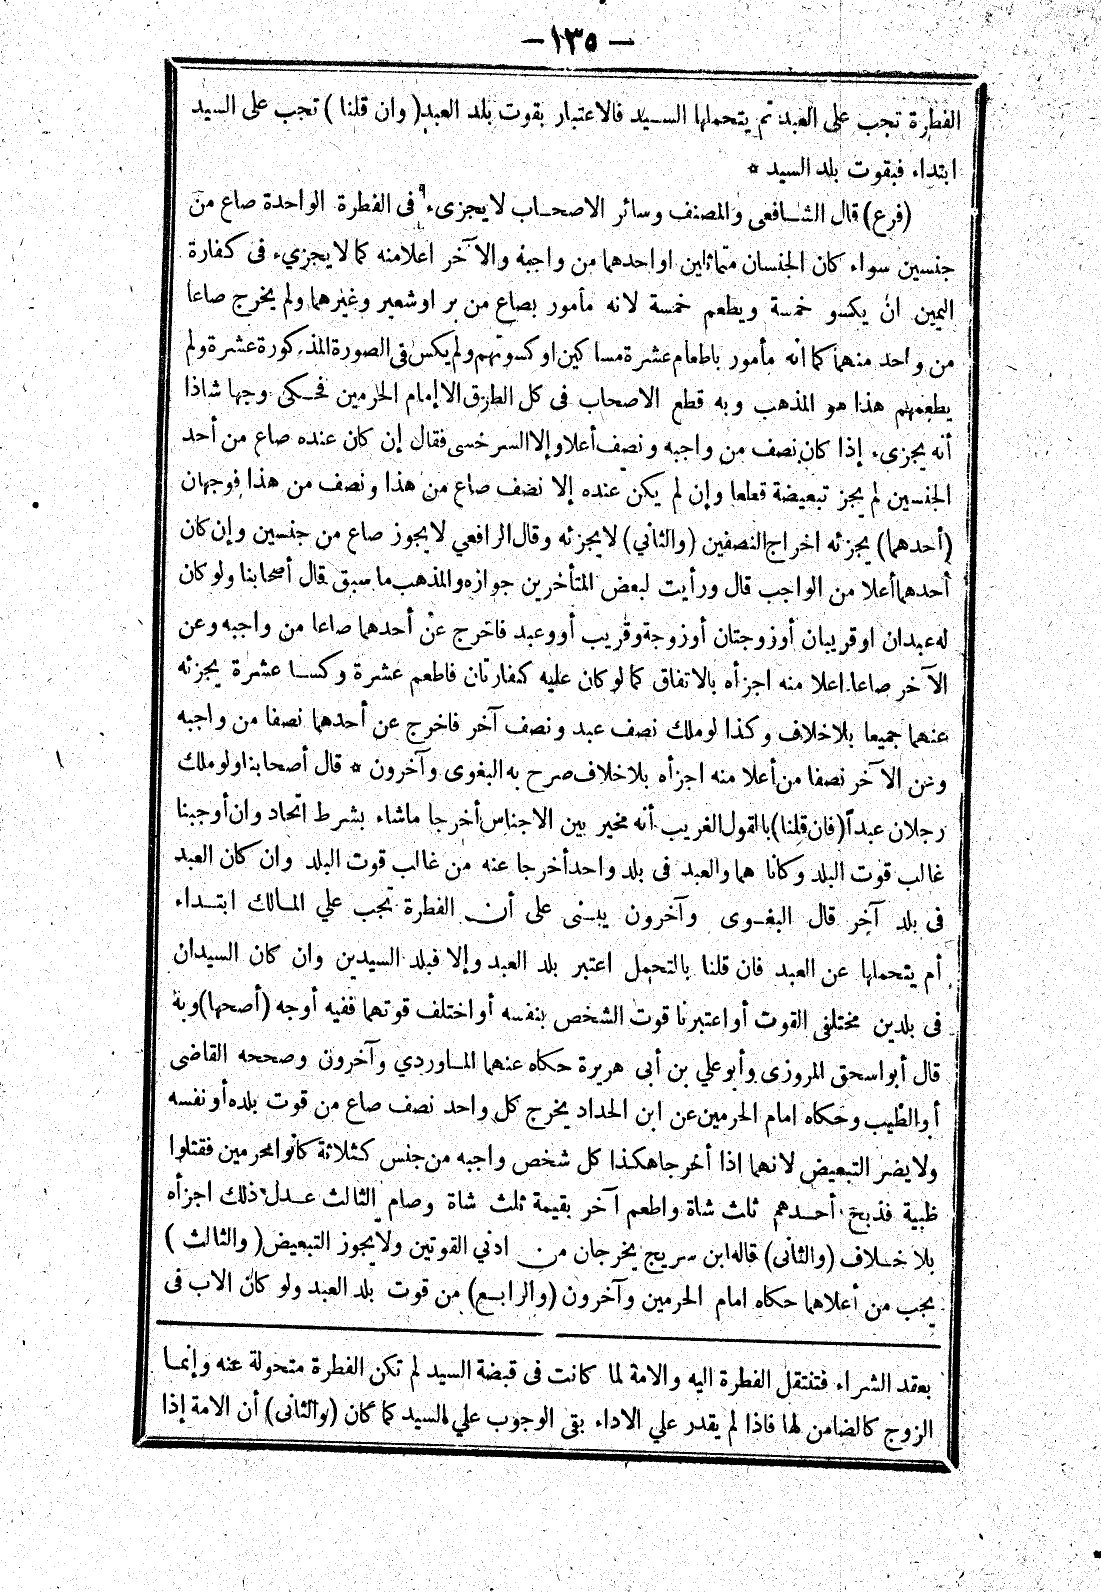 — ١٣٥ —
الفطرة تجب على العبد ثم يتحملها الســيد فالاعتبار بقوت بلد العبد ( وان قلنا ) تجب على السيد
ابتداء فبقوت بلد السيد *
(فرع) قال الشــافعى والمصنف وسائر الاصحــاب لا يجزىء فى الفطرة الواحدة صاع من
جنسين سواء كان الجنسان متماثلين او احدهما من واجبه والآخر اعلا منه كما لا يجزيء فى كفارة
اليمين ان يكسو خمسة ويطعم خمسة لانه مأمور بصاع من بر او شعير وغيرهما ولم يخرج صاعا
من واحد منهما كما انه مأمور باطعام عشرة مساكين او كسوتهم ولم يكس فى الصورة المذكورة عشرة ولم
يطعمهم هذا هو المذهب وبه قطع الاصحاب فى كل الطرق الا إمام الحرمين فحــكى وجها شاذا
أنه يجزىء إذا كان نصف من واجبه ونصف أعلا وإلا السرخسى فقال إن كان عنده صاع من أحد
الجنسين لم يجز تبعيضة قطعا وإن لم يكن عنده إلا نصف صاع من هذا ونصف من هذا فوجهان
(أحدهما) يجزئه اخراج النصفين (والثاني) لا يجزئه وقال الرافعي لا يجوز صاع من جنسين وإن كان
أحدهما أعلا من الواجب قال ورأيت لبعض المتأخرين جوازه والمذهب ما سبق قال أصحابنا ولو كان
له عبدان او قريبان أو زوجتان أو زوجة وقريب أو وعبد فاخرج عن أحدهما صاعا من واجبه وعن
الآخر صاعا اعلا منه اجزأه بالاتفاق كما لو كان عليه كفارتان فاطعم عشرة وكســا عشرة يجزئه
عنهما جميعا بلا خلاف وكذا لو ملك نصف عبد ونصف آخر فاخرج عن أحدهما نصفا من واجبه
وعن الآخر نصفا من أعلا منه اجزأه بلا خلاف صرح به البغوى وآخرون * قال أصحابنا ولو ملك
رجلان عبداً (فان قلنا) بالقول الغريب أنه مخير بين الاجناس أخرجا ماشاء بشرط اتحاد وان أوجبنا
غالب قوت البلد وكانا هما والعبد فى بلد واحد أخرجا عنه من غالب قوت البلد وان كان العبد
فى بلد آخر قال البغــوى وآخرون يبــنى على أن الفطرة تجب علي المــالك ابتــداء
أم يتحملها عن العبد فان قلنا بالتحمل اعتبر بلد العبد وإلا فبلد السيدين وان كان السيدان
فى بلدين مختلفى القوت أو اعتبرنا قوت الشخص بنفسه أو اختلف قوتهما ففيه أوجه (أصحها) وبة
قال أبو اسحق المروزى وأبو علي بن أبى هريرة حكاه عنهما المــاوردي وآخرون وصححه القاضى
أبو الطيب وحكاه امام الحرمين عن ابن الحداد يخرج كل واحد نصف صاع من قوت بلده أو نفسه
ولا يضر التبعيض لانهما اذا أخرجا هكذا كل شخص واجبه من جنس كثلاثة كانوا محرمين فقتلوا
ظبية فذبح أحــدهم ثلث شاة واطعم آخر بقيمة ثلث شاة وصام الثالث عــدل ذلك اجزأه
بلا خــلاف (والثانى) قاله ابن سريج يخرجان من ادني القوتين ولا يجوز التبعيض ( والثالث )
يجب من أعلاهما حكاه امام الحرمين وآخرون (والرابــع) من قوت بلد العبد ولو كان الاب فى
بعقد الشراء فتنتقل الفطرة اليه والامة لما كانت فى قبضة السيد لم تكن الفطرة متحولة عنه وإنمــا
الزوج كالضامن لها فاذا لم يقدر علي الاداء بقى الوجوب علي السيد كما كان (والثانى) أن الامة إذا